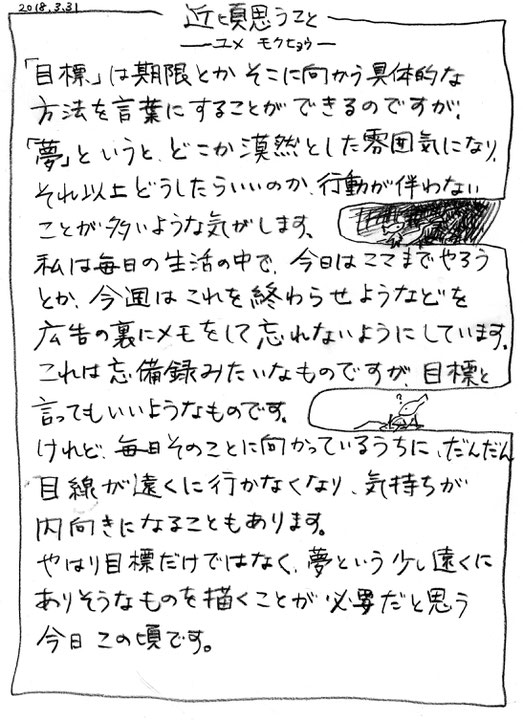 2018.3.31
近頃思うこと
―ユメ モクヒョウ―
「目標」は期限とか そこに向かう具体的な
方法を言葉にすることができるのですが、
「夢」というと、どこか漠然とした雰囲気になり、
それ以上どうしたらいいのか、行動が伴わない
ことが多いような気がします。
私は毎日の生活の中で、今日はここまでやろう
とか、今週はこれを終わらせようなどを
広告の裏にメモをして忘れないようにしています。
これは忘備録みたいなものですが、目標と
言ってもいいようなものです。
?
けれど、毎日そのことに向かっているうちに、だんだん
目線が遠くに行かなくなり、気持ちが
内向きになることもあります。
やはり目標だけではなく、夢という少し遠くに
ありそうなものを描くことが必要だと思う
今日この頃です。